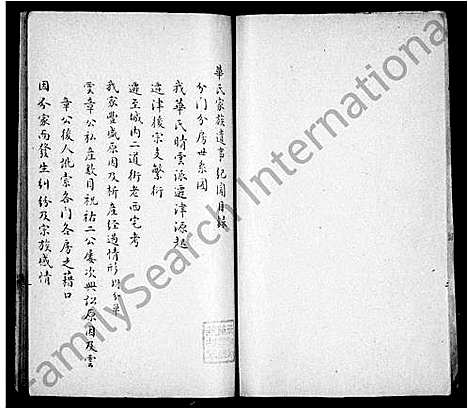 華氏家族遺事紀聞目錄
分門分房世系圖
我華氏晴雲派遷津源起
遷津後宗支繁衍
遷至城內二道街老西宅考
我家豐盛原因及析產經過情形以分單
雲章公私產數目祝祜二公屢次興訟原因及雲
章公後人批索各門各房之藉口
因分家而發生糾紛及宗族感情
FamilySearch International